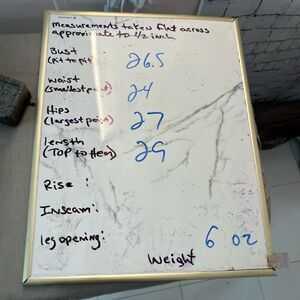 measurements taken flat across
approximate to 1/2 inch
Bust:
(Pit to pit) 26.5
waist
(smallest point) 24
Hips:
(largest point) 27
length
(TOP to Hem) 29
Rise:
Inseam:
leg opening:
6 oz
Weight